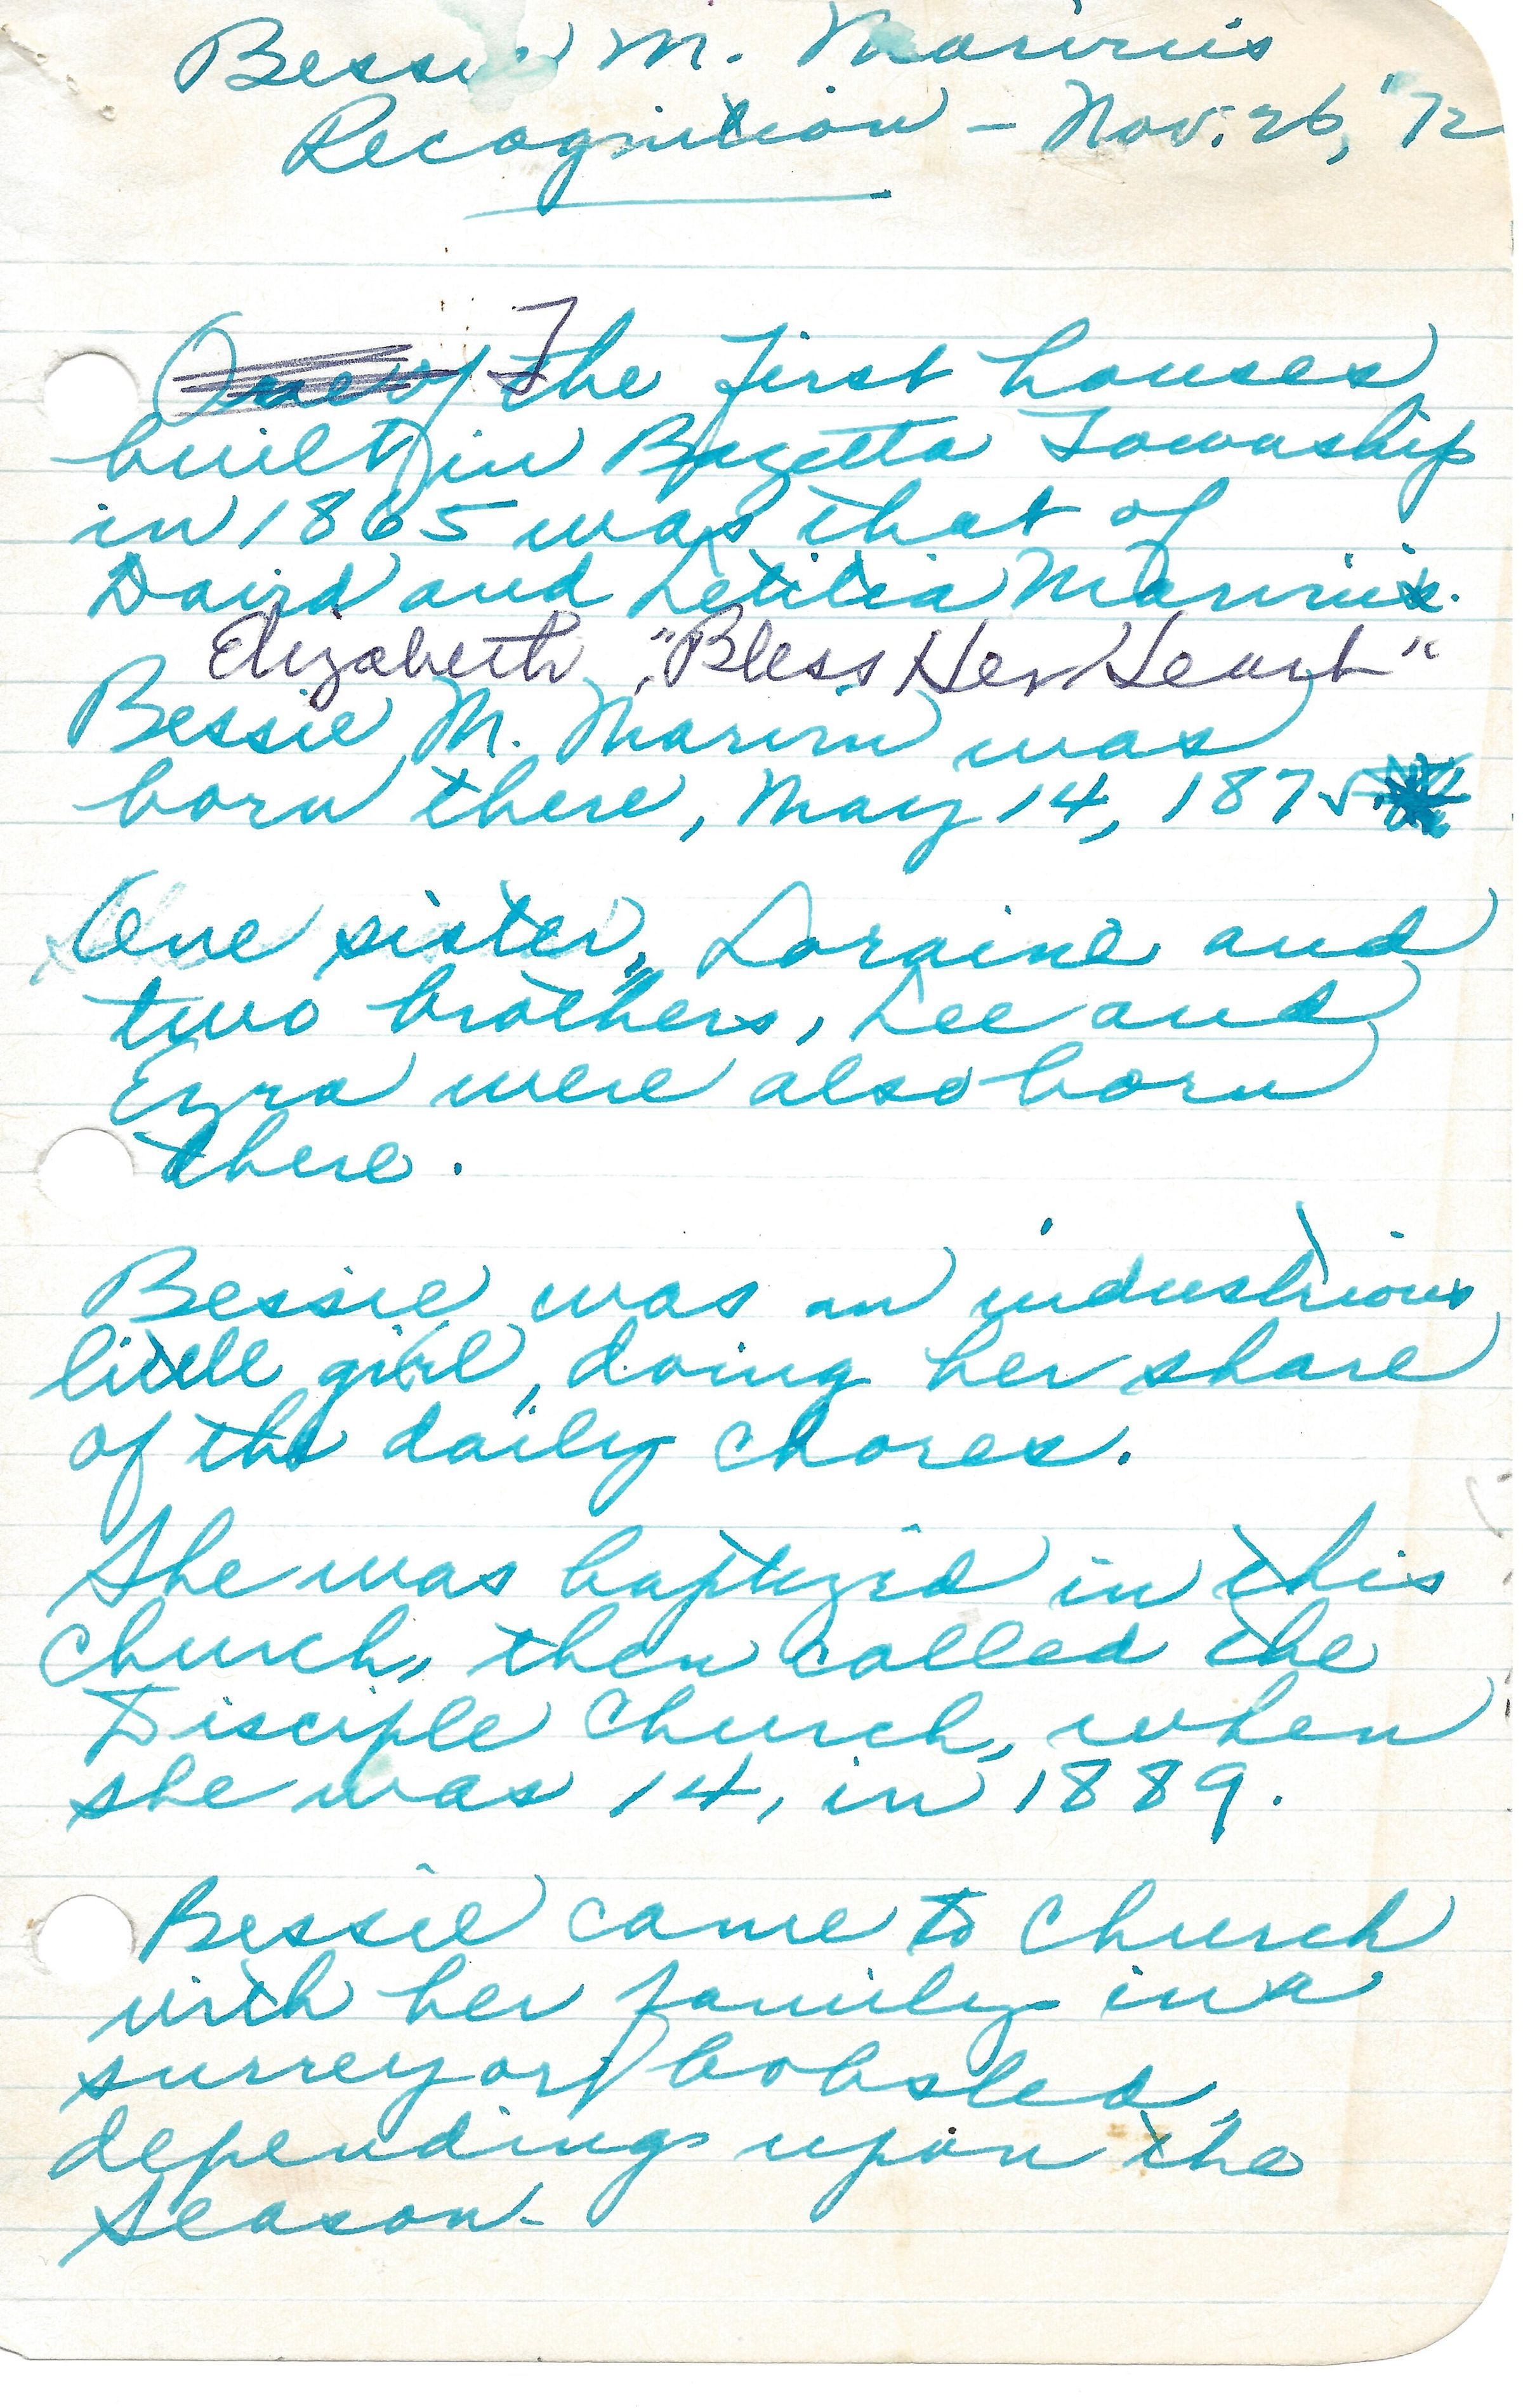 Bessie M. Marvin's
Recognition - Nov. 26, '72
One of The first houses
built in Bazetta Township
in 1865 was that of
David and Letitia Marvin.
Elizabeth "Bless Her Heart"
Bessie M. Marvin was
born there, May 14, 1875.
One sister, Loraine and
two brothers, Lee and
Ezra were also born
there.
Bessie was an industrious
little girl, doing her share
of the daily chores.
She was baptized in this
church, then called the
Disciple Church, when
she was 14, in 1889.
Bessie came to Church
with her family in a
surrey or bobsled,
depending upon the
season.